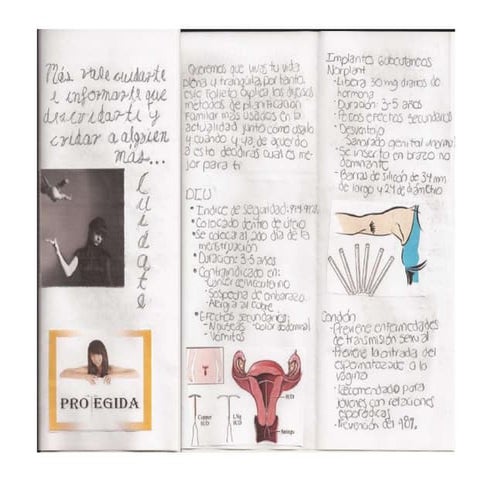 Más vale cuidarte
e informarte que
descuidarte y
cuidar a alguien
más...
Cuídate
PROEGIDA
Queremos que vivas tu vida
plena y tranquila, por tanto
este folleto explica los
métodos de planificación
familiar más usados en la
actualidad junto como usarlo
y cuándo y ya de acuerdo
a esto decidirás cuál es me-
jor para ti
DIU
• Indice de seguridad:
• Colocado dentro de útero
• Se coloca al 2do día de la
menstruación
• Duración: 3-5 años
• Contraindicado en:
- Cáncer cervicouterino
- Sospecha de embarazo
- Alergia al cobre
• Efectos secundarios:
- Nauseas - Dolor abdominal
- Vómitos
Copper
IUD
IUD
IUD
Strings
Implantes Subcutáneos
Norplant
- Libera 30 mg diarios de
hormona
- Duración 3-5 años
- Pocos efectos secundarios
- Desventaja
- Sangrado genital
- Se inserta en brazo no
dominante
- Barras de silicón de 34 mm
de largo y 2.4 de diámetro
Condón
- Previene enfermedades
de transmisión sexual
- Previene la entrada del
espermatozoide a la
vagina
- Recomendado para
jóvenes con relaciones
esporádicas
- Prevención del 98%